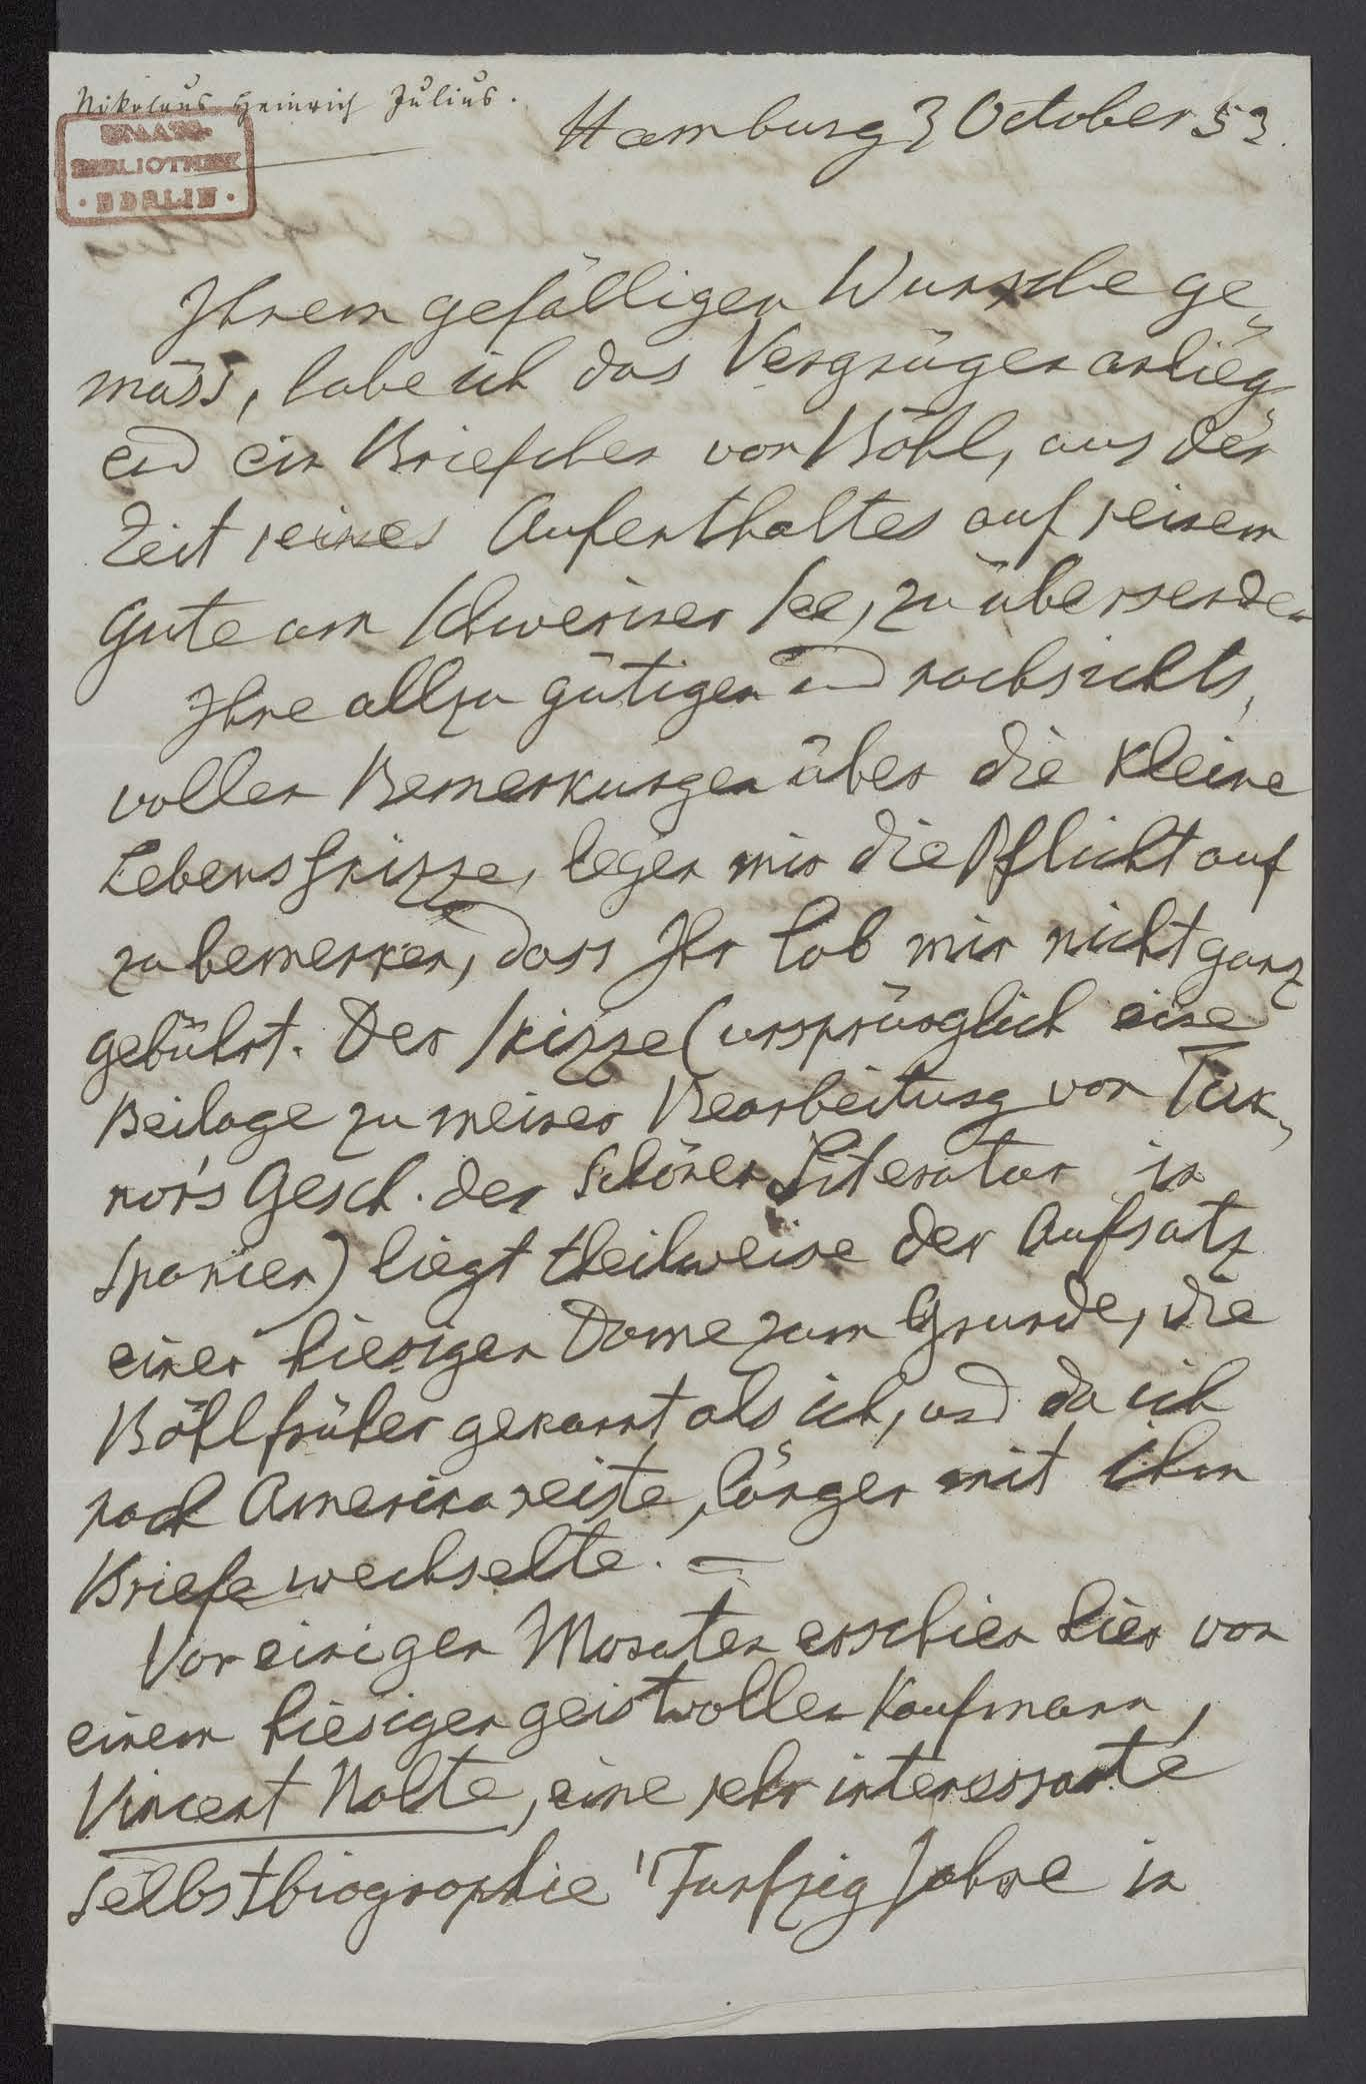 Nikolaus Heinrich Julius.
STAATS-
BIBLIOTHEK
· BERLIN ·
Hamburg 3 October 53.
Ihrem gefälligen Wunsche ge„
mäss, habe ich das Vergnügen anlieg„
end ein Briefchen von Böhl, aus der
Zeit seines Aufenthaltes auf seinem
Gute am Schweriner See, zu übersenden
Ihre allzu gütigen und nachsichts„
vollen Bemerkungen über die kleine
Lebensskizze, legen mir die Pflicht auf
zu bemerken, dass Ihr Lob mir nicht ganz
gebührt. Der Skizze (ursprünglich eine
Beilage zu meiner Bearbeitung von Tick„
nor's Gesch. der Schönen Literatur in
Spanien) liegt theilweise der Aufsatz
einer hiesigen Dame zum Grunde, die
Böhl früher gekannt als ich, und da ich
nach Amerika reiste, länger mit ihm
Briefe wechselte. —
Vor einigen Monaten erschien hier von
einem hiesigen geistvollen Kaufmann,
Vincent Nolte, eine sehr interessante
Selbstbiographie "Funfzig Jahre in